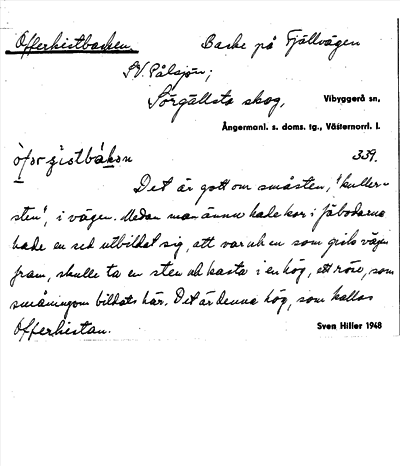 Offerkistbacken Backe på Fjällvägen
SV. Pålsjön;
Sörgällsta skog, Vibyggerå sn,
Ångermanl. s. doms. tg., Västernorrl. l.
òfor ʒistbákan 339.
Det är gott om småsten, "kuller-
sten", i vägen. Medan man ännu hade kor i fäbodarna
hade en sed utbildat sig, att var och en som gick vägen
fram, skulle ta en sten och kasta i en hög, ett röse, som
småningom bildats här. Det är denna hög, som kallas
Offerkistan. Sven Hiller 1948